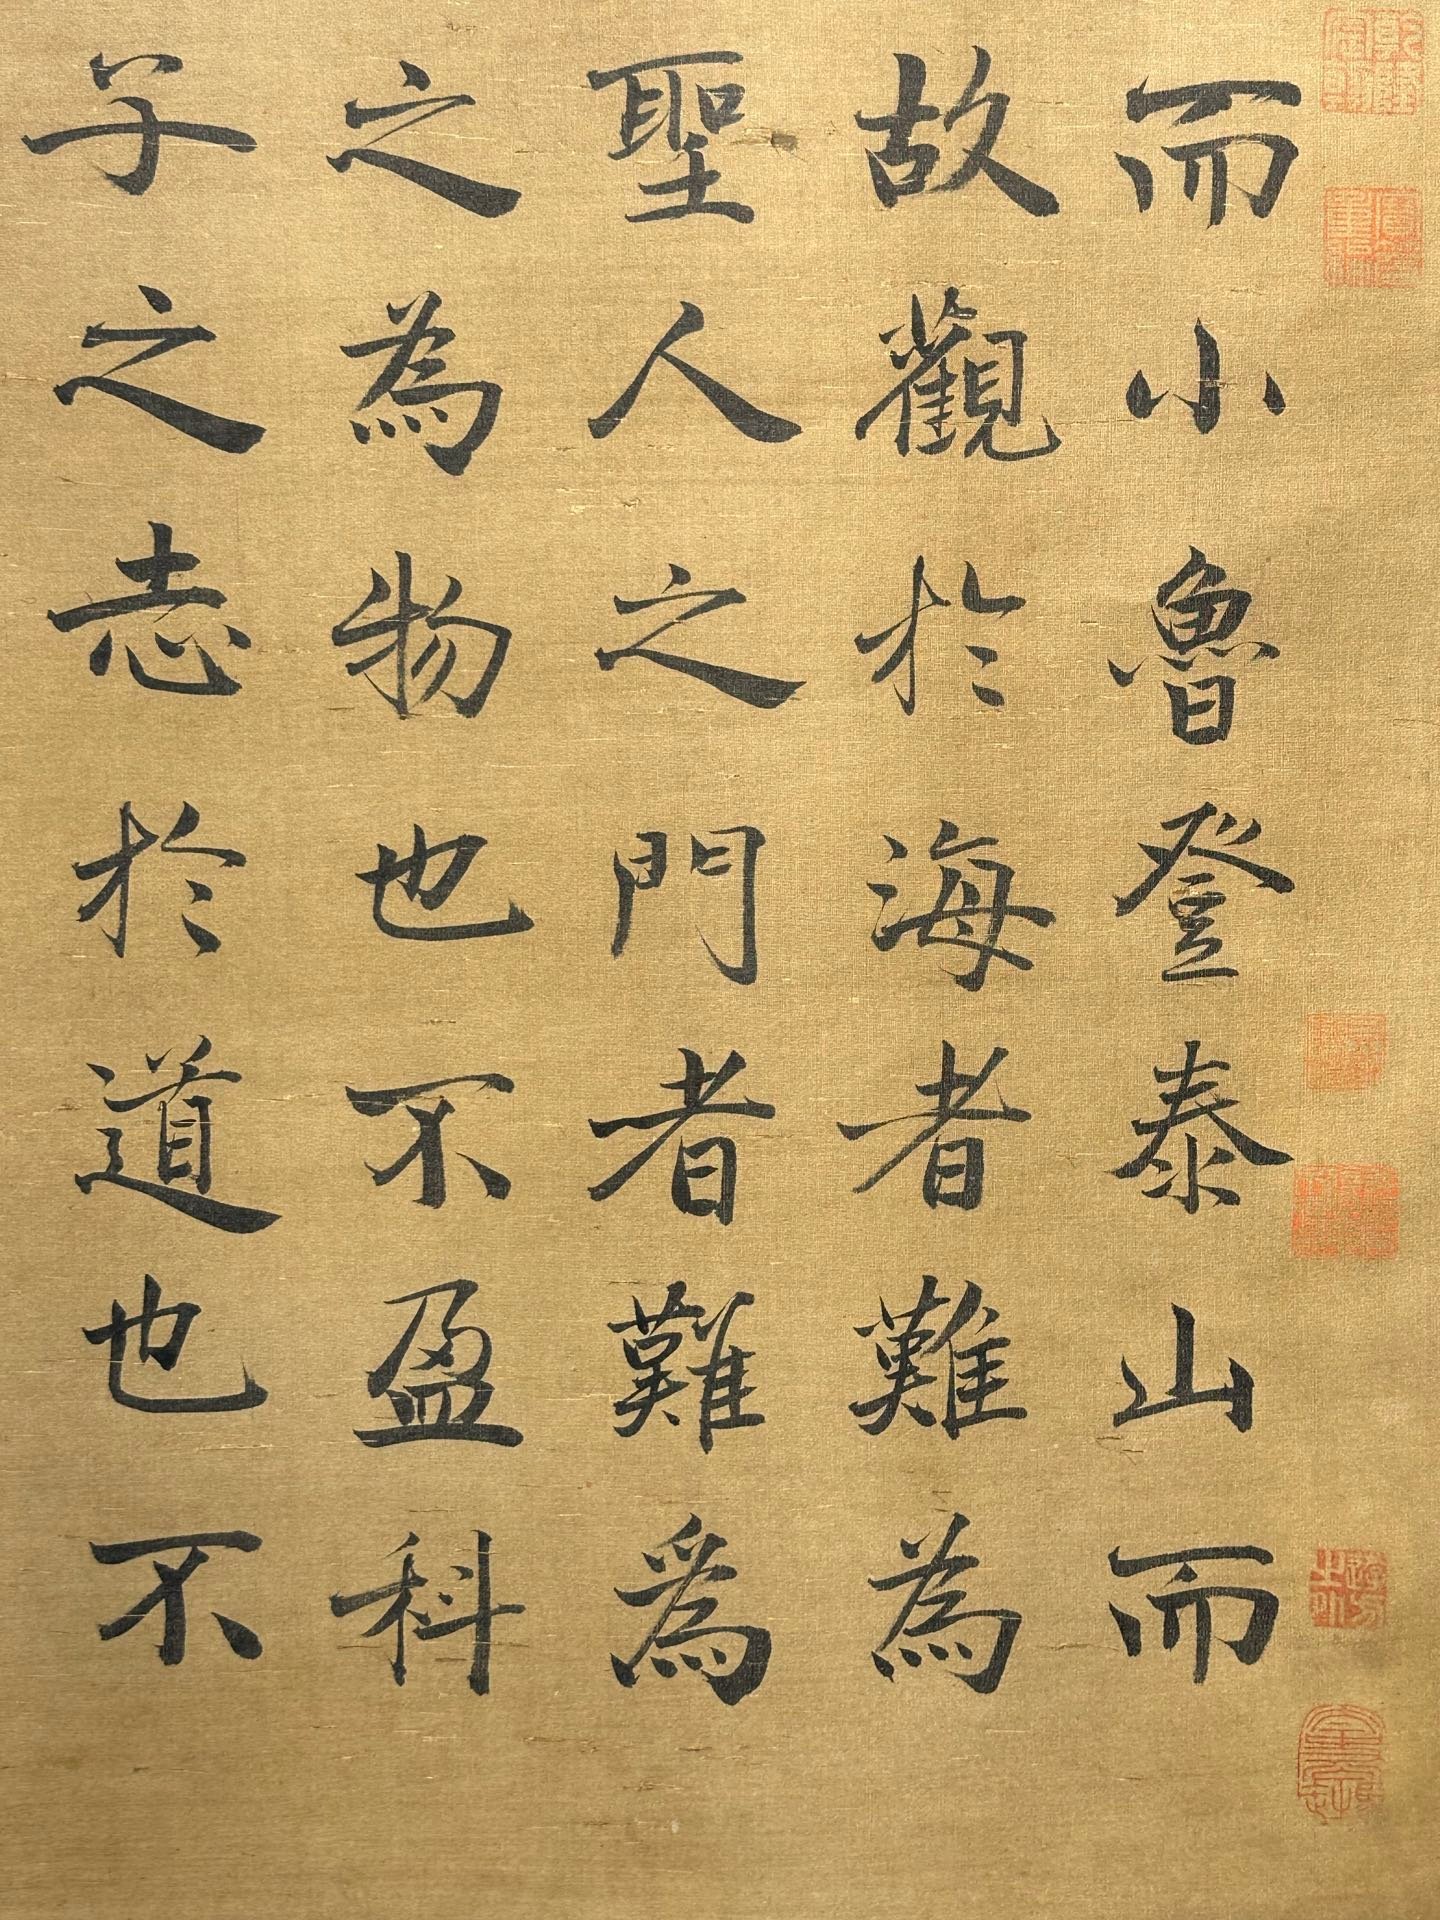 而小魯登泰山而
故觀於海者難為
聖人之門者難為
之為物也不盈科
子之志於道也不